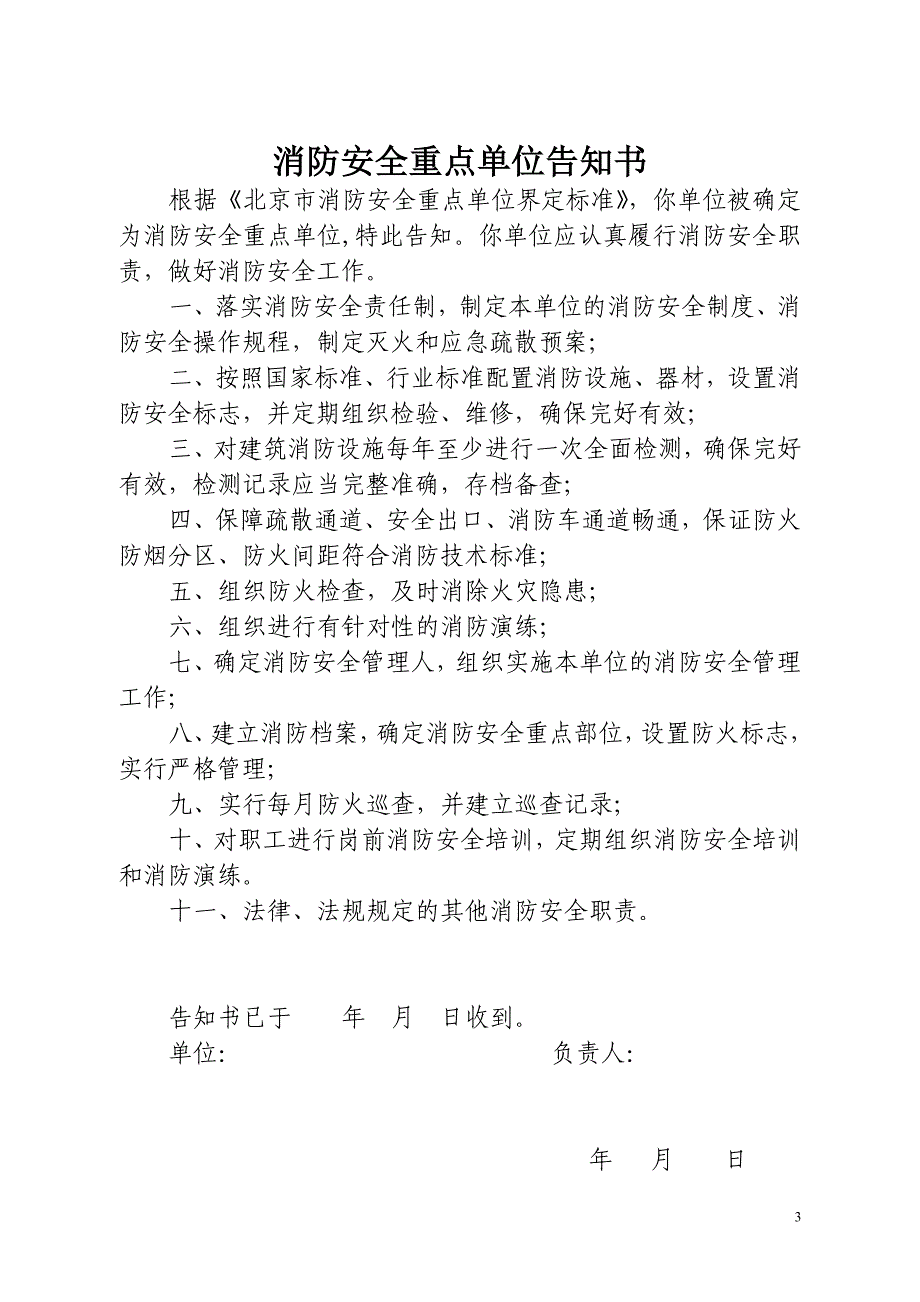 消防安全重点单位告知书
根据《北京市消防安全重点单位界定标准》，你单位被确定
为消防安全重点单位,特此告知。你单位应认真履行消防安全职
责，做好消防安全工作。
一、落实消防安全责任制，制定本单位的消防安全制度、消
防安全操作规程，制定灭火和应急疏散预案；
二、按照国家标准、行业标准配置消防设施、器材，设置消
防安全标志，并定期组织检验、维修，确保完好有效；
三、对建筑消防设施每年至少进行一次全面检测，确保完好
有效，检测记录应当完整准确，存档备查；
四、保障疏散通道、安全出口、消防车通道畅通，保证防火
防烟分区、防火间距符合消防技术标准；
五、组织防火检查，及时消除火灾隐患；
六、组织进行有针对性的消防演练；
七、确定消防安全管理人，组织实施本单位的消防安全管理
工作；
八、建立消防档案，确定消防安全重点部位，设置防火标志，
实行严格管理；
九、实行每月防火巡查，并建立巡查记录；
十、对职工进行岗前消防安全培训，定期组织消防安全培训
和消防演练。
十一、法律、法规规定的其他消防安全职责。
告知书已于　　年　月　日收到。
单位：　　　　　　　　　　　　　负责人：
年　月　　日
3